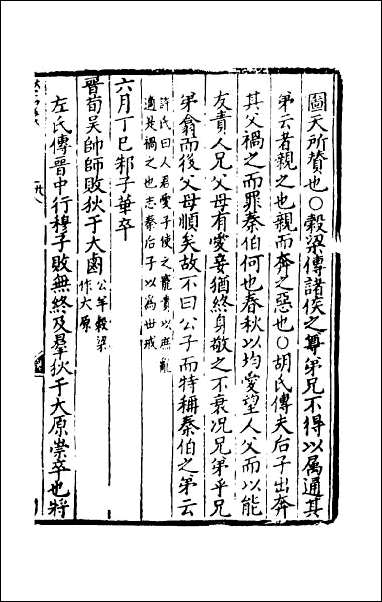 圖天所贊也○穀梁傳諸侯之尊弟兄不得以属通其
弟云者親之也親而奔之惡也○胡氏傳夫后子出奔
其父禍之而罪秦伯何也春秋以均愛望人父而以能
友責人兄父母有愛妾猶終身敬之不衰况兄弟乎兄
弟翕而後父母順矣故不曰公子而特稱秦伯之弟云
許氏曰人君愛子使之寵貴以庶亂
適是禍之也志秦后子以為世戒
六月丁巳邾子華卒
晉荀吳帥師敗狄于大鹵
公羊穀梁
作大原
左氏傳晉中行穆子敗無終及羣狄于大原崇卒也將